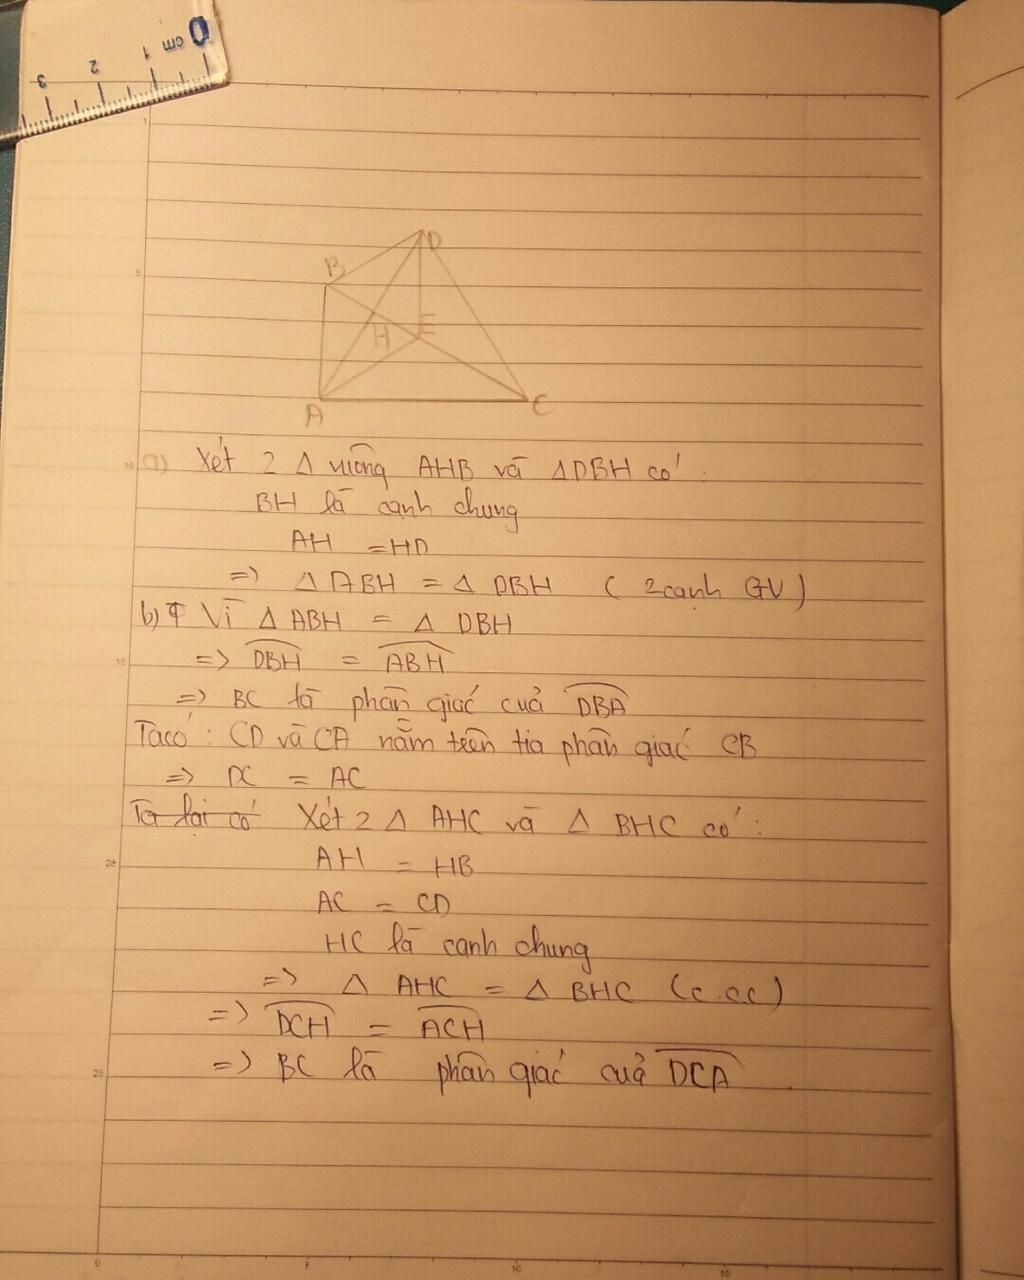 0 cm 1 2 3
1
5
B
D
H
E
A
C
10
a) Xét 2 Δ vuông AHB và ΔDBH có :
BH là cạnh chung
AH = HD
=> Δ ABH = Δ DBH ( 2 cạnh GV )
b) Vì Δ ABH = Δ DBH
15
=> DBH = ABH
=> BC là phân giác của DBA
Ta có : CD và CA nằm trên tia phân giác CB
=> DC = AC
Ta lại có Xét 2 Δ AHC và Δ BHC có :
20
AH = HB
AC = CD
HC là cạnh chung
=> Δ AHC = Δ BHC (c.c.c)
=> DCH = ACH
25
=> BC là phân giác của DCA
0 5 10 15